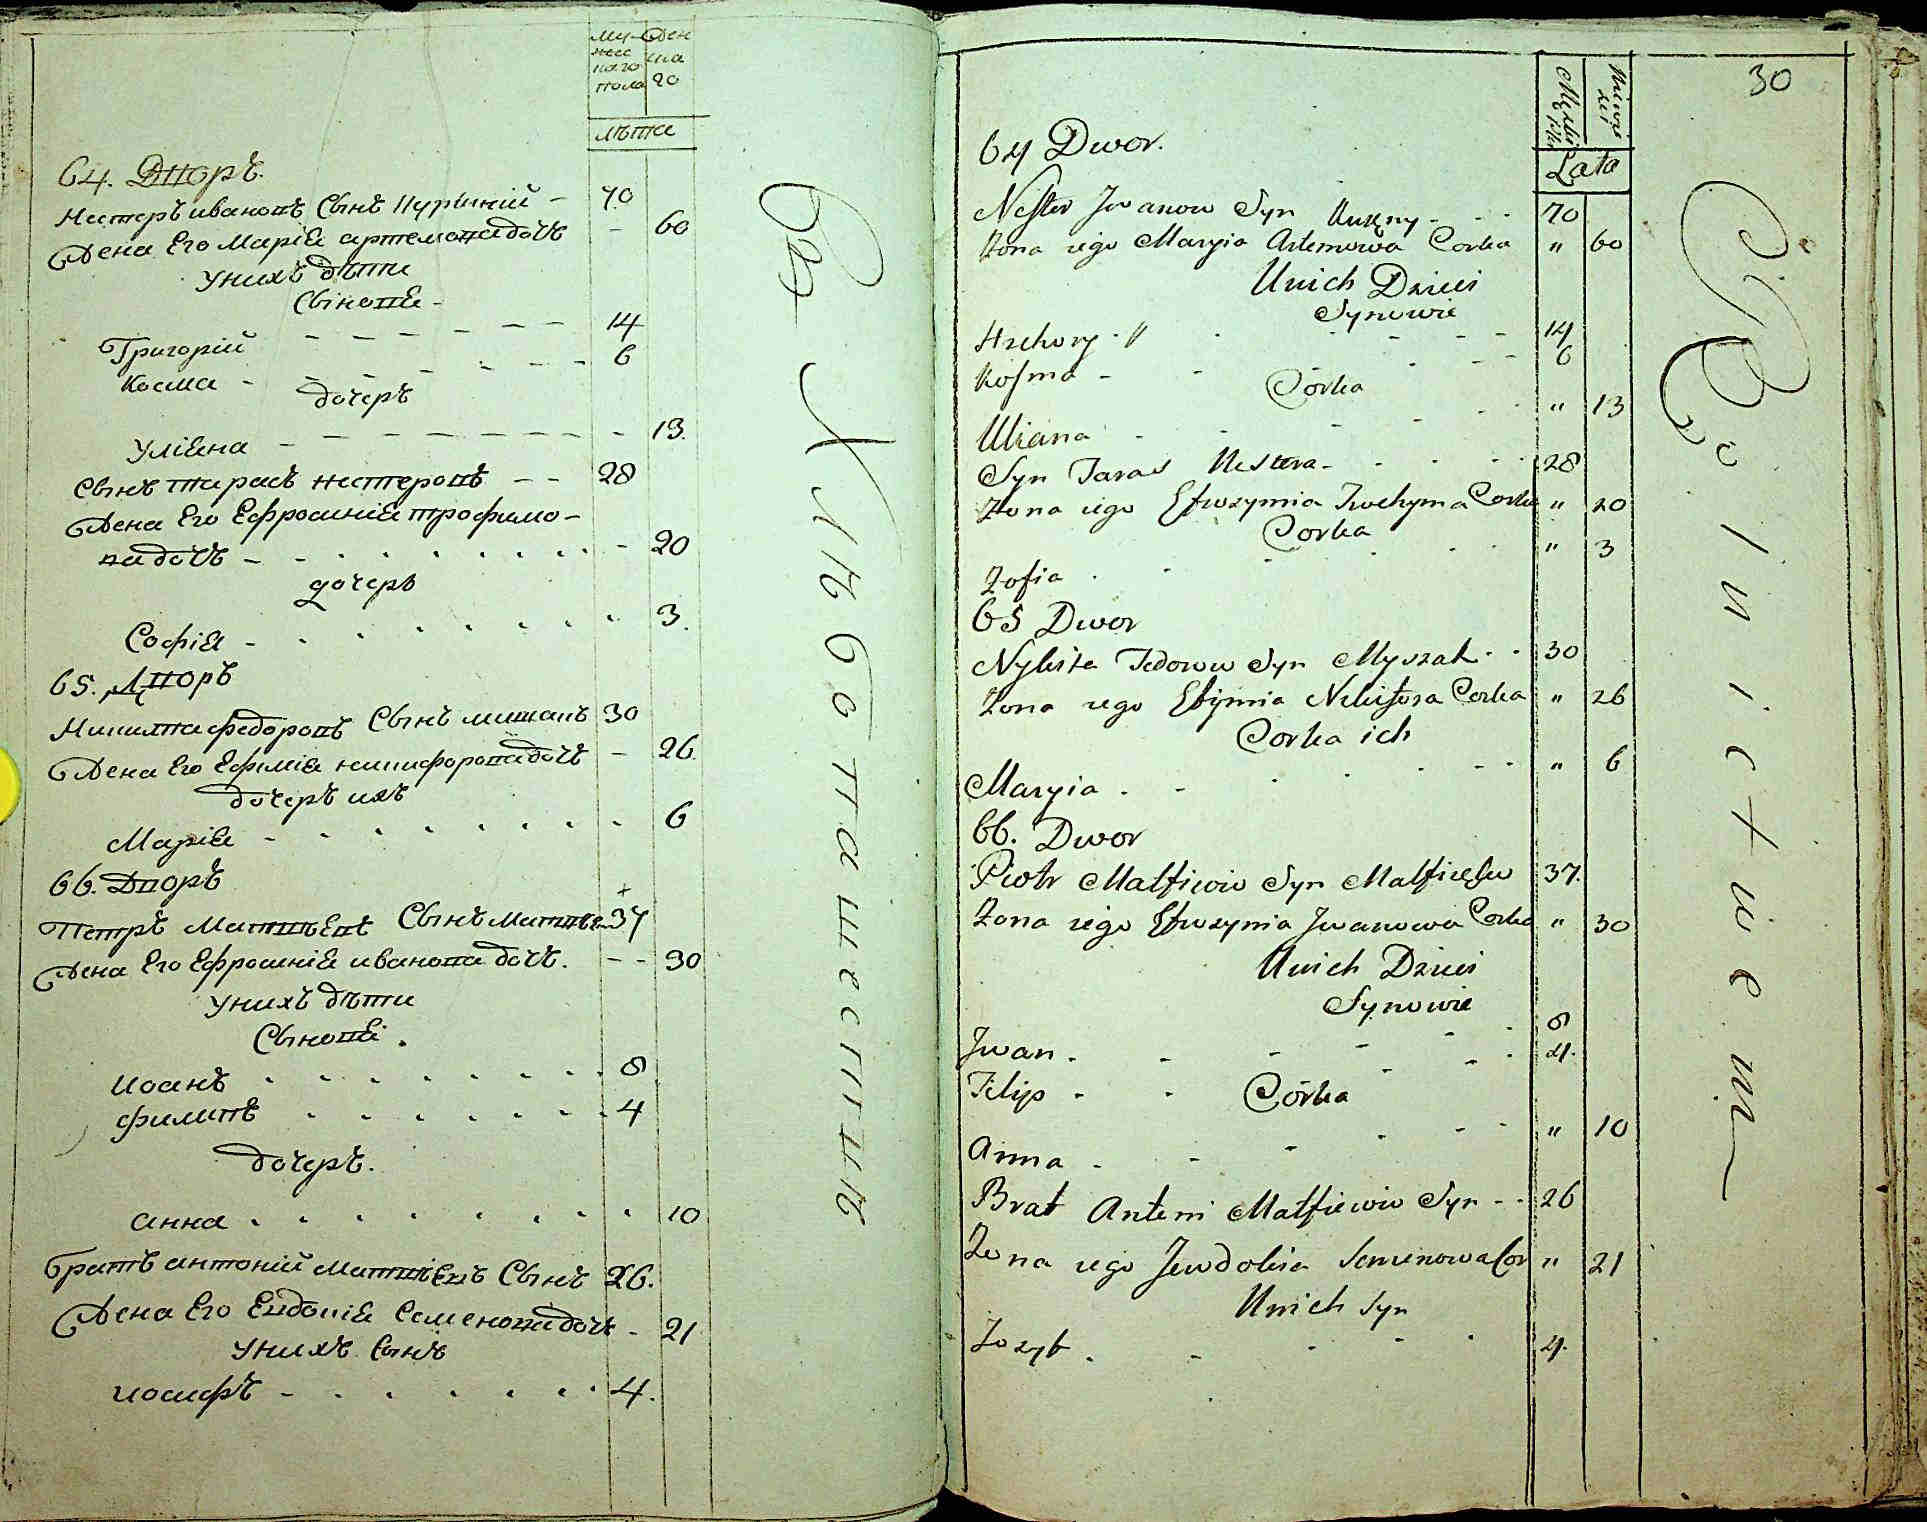 му-
жес
каго
пола
Жен
ска
го
лѣта
64. Дворъ.
Нестеръ ивановъ Сынъ - 70
Жена Его Маріѧ артемова дочь - 60
Унихъ дѣти
Сыновѣ -
Григорій - - - - - - 14
Косма - - - - - - 6
дочеръ
Уліѧна - - - - - - - - 13.
Сынъ тарасъ нестеровъ - - 28
Жена Его Ефросиніѧ трофимо-
ва дочь - - - 20
дочеръ
Софіѧ - 3.
65. Дворъ
Никита федоровъ Сынъ мишакъ 30
Жена Его Ефиміѧ никифорова дочь - 26.
дочеръ ихъ
Маріѧ - 6
66. Дворъ
Петръ Матвѣевъ Сынъ 37
Жена Его Ефросиніѧ иванова дочь. - - 30
Унихъ дѣти
Сыновѣ.
Иоанъ 8
филипъ 4
дочеръ.
анна 10
братъ антоній Матвѣевъ Сынъ 26.
Жена Его Евдокіѧ Семенова дочь - 21
Унихъ Сынъ
иосифъ - 4.
30
Lata
64 Dwor.
Nester Jwanow Syn - - - 70
Zona iego Maryia Artemowa Corka " 60
Unich Dzieci
Synowie
Hrehory 14
Kosma - 6
Corka
Uliana - " 13
Syn Taras Nestera - 28
Zona iego Efrozymia Trochyma Corka " 20
Corka
Zofia " 3
65 Dwor
Nykita Fedorow Syn Myszak - - 30
Zona iego Efymia Nikifora Corka " 26
Corka ich
Maryia - - " 6
66. Dwor
Piotr Matfieiw Syn 37.
Zona iego Efrozymia Jwanowa Corka " 30
Unich Dzieci
Synowie
Jwan - 8
Filip - - 4.
Córka
Anna - - " 10
Brat Anteni Matfieiw Syn - - 26
Zona iego Jewdokia Semenowa Cor " 21
Unich Syn
Jozyf 4.